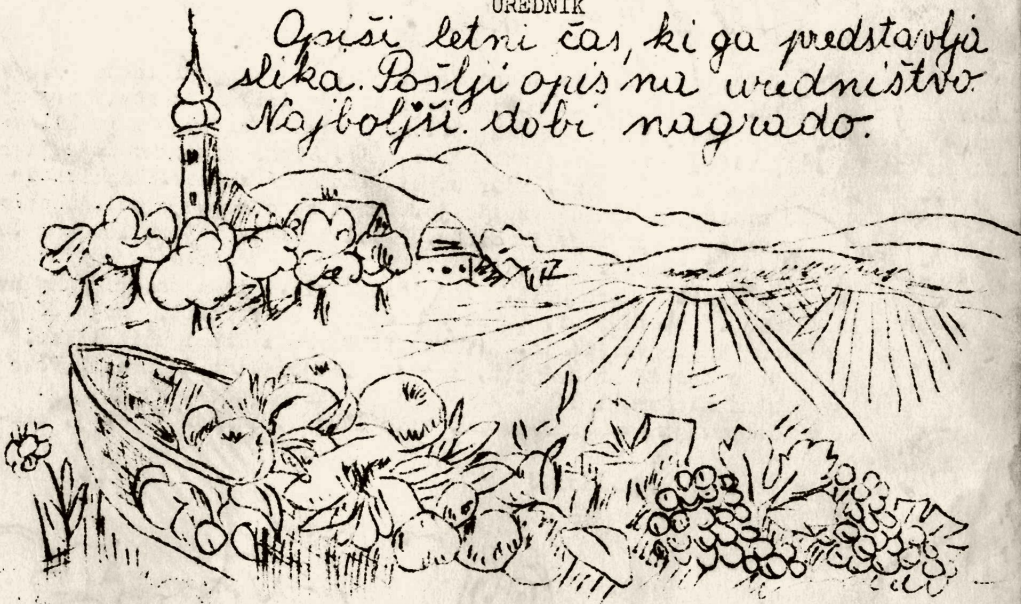 UREDNIK
Opiši letni čas, ki ga predstavlja
slika. Pošlji opis na uredništvo.
Najboljši dobi nagrado.